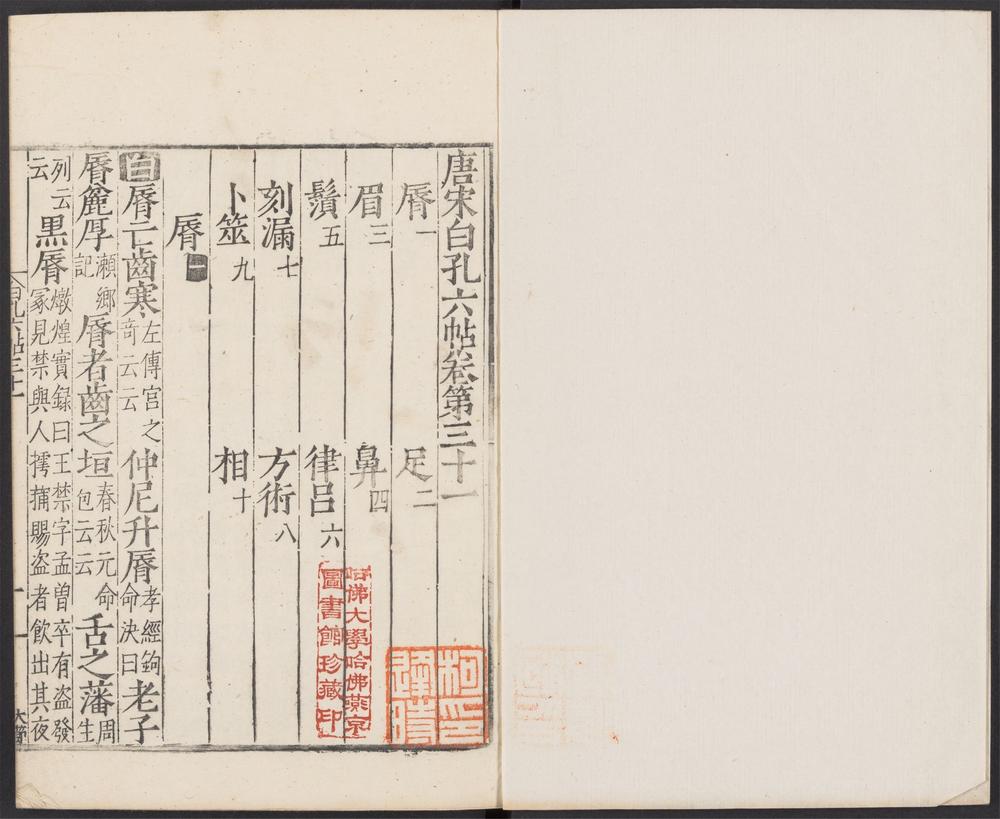 唐宋白孔六帖卷第三十一
脣一 足二
眉三 鼻四
鬚五 律呂六
刻漏七 方術八
卜筮九 相十
脣一
白脣亡齒寒左傳宮之竒云云仲尼升脣孝經鉤命決曰老子
脣麄厚瀬鄉記脣者齒之垣春秋元命包云云舌之藩周生
列云云黒脣燉煌實録曰王禁字孟曽卒有盗發冢見禁與人摴蒱賜盗者飲出其夜
白孔六帖三十一
一
哈佛大學哈佛燕京
圖書館珍藏印
柯印
逢時